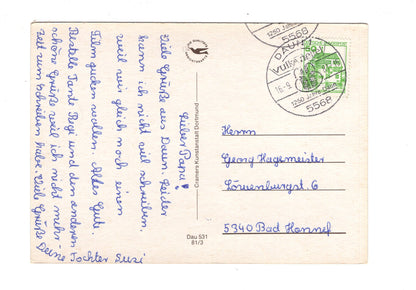 Lieber Papa!
Viele Grüße aus Daun. Leider
kann ich nicht viel schreiben,
weil wir gleich noch einen
Film gucken wollen. Alles Gute.
Bestelle Tante Rege und den anderen
schöne Grüße weil ich nicht mehr
zeit zum schreiben habe. Viele Grüße
Deine Tochter Susi
Cramers Kunstanstalt Dortmund
Dau 531
81/3
5568
DAUN 1
5568
Herrn
Georg Hagemeister
Löwenburgst. 6
5340 Bad Honnef